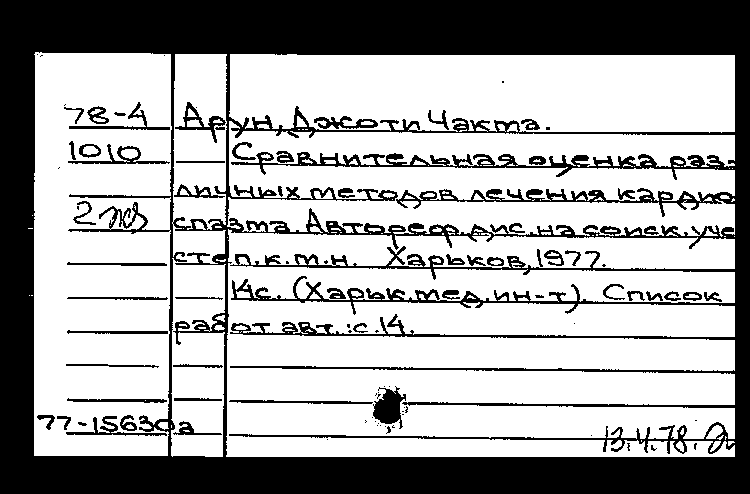 78-4 Арун, Джоти Чакта.
1010 Сравнительная оценка раз-
личных методов лечения кардио
2 экз спазма. Автореф.дис.на соиск.уче
степ.к.м.н. Харьков, 1977.
14с. (Харьк.мед.ин-т). Список
работ авт.:с.14.
77-15630а
13.4.78.